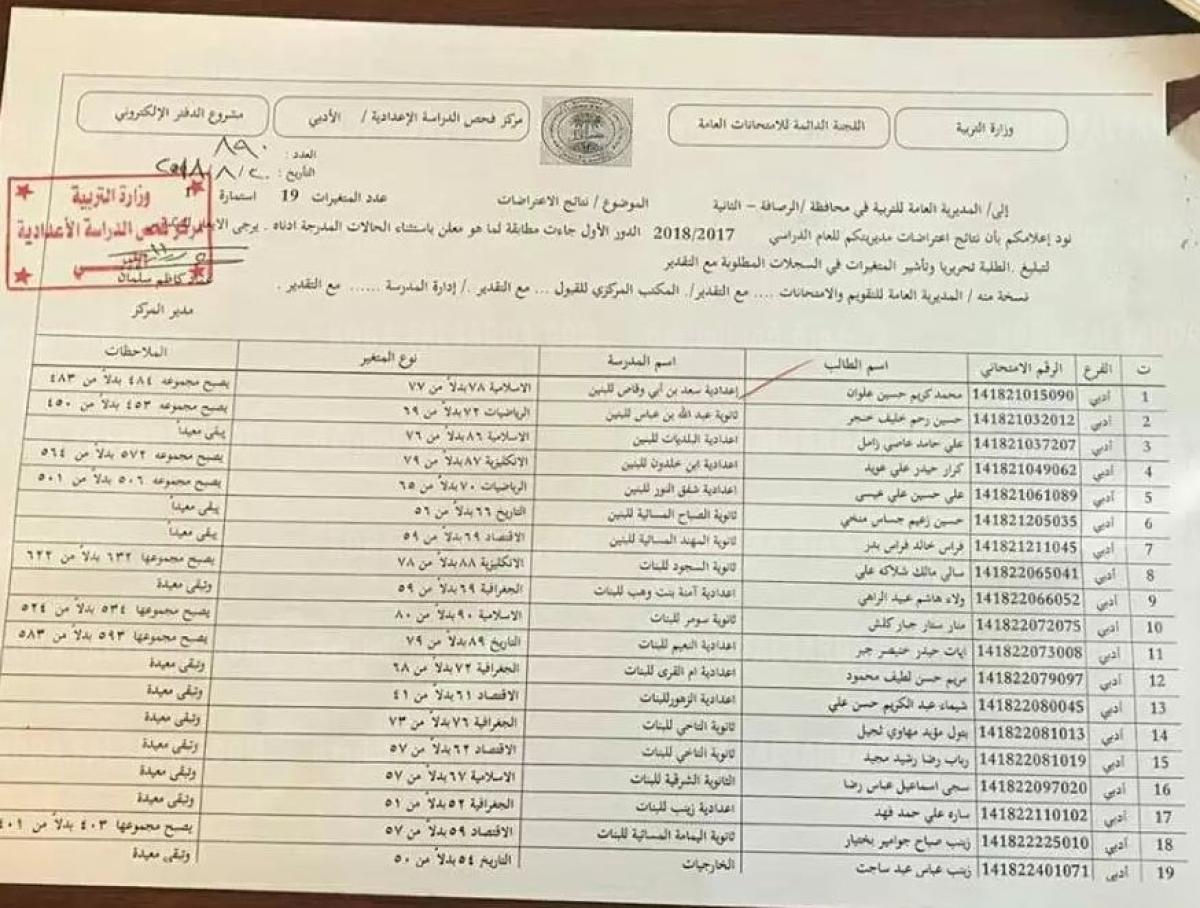 وزارة التربية
اللجنة الدائمة للامتحانات العامة
مركز فحص الدراسة الإعدادية / الأدبي
مشروع الدفتر الإلكتروني
العدد : ٨٩٠
التاريخ :
وزارة التربية
مركز فحص الدراسة الأعدادية
إلى/ المديرية العامة للتربية في محافظة /الرصافة – الثانية الموضوع / نتائج الاعتراضات عدد المتغيرات 19 استمارة
نود إعلامكم بأن نتائج اعتراضات مديريتكم للعام الدراسي 2018/2017 الدور الأول جاءت مطابقة لما هو معلن باستثناء الحالات المدرجة ادناه . يرجى
لتبليغ .الطلبة تحريريا وتأشير المتغيرات في السجلات المطلوبة مع التقدير
نسخة منه / المديرية العامة للتقويم والامتحانات .... مع التقدير/. المكتب المركزي للقبول ... مع التقدير ./ إدارة المدرسة ...... مع التقدير .
كاظم سلمان
مدير المركز
ت الفرع الرقم الامتحاني اسم الطالب اسم المدرسة نوع المتغير الملاحظات
1 أدبي 141821015090 محمد كريم حسين علوان إعدادية سعد بن أبي وقاص للبنين الاسلامية ٧٨ بدلاً من ٧٧ يصبح مجموعه ٤٨٤ بدلاً من ٤٨٣
2 أدبي 141821032012 حسين رحم خليف خنجر ثانوية عبد الله بن عباس للبنين الرياضيات ٧٢ بدلاً من ٦٩ يصبح مجموعه ٤٥٣ بدلاً من ٤٥٠
3 أدبي 141821037207 علي حامد عاصي زامل اعدادية البلديات للبنين الاسلامية ٨٦ بدلاً من ٧٦ يبقى معيداً
4 أدبي 141821049062 كرار حيدر علي عويد اعدادية ابن خلدون للبنين الانكليزية ٨٧ بدلاً من ٧٩ يصبح مجموعه ٥٧٢ بدلاً من ٥٦٤
5 أدبي 141821061089 علي حسين علي عيسى اعدادية شفق النور للبنين الرياضيات ٧٠ بدلاً من ٦٥ يصبح مجموعه ٥٠٦ بدلاً من ٥٠١
6 أدبي 141821205035 حسين زعيم جساس منخي ثانوية الصباح المسائية للبنين التاريخ ٦٦ بدلاً من ٥٦ يبقى معيداً
7 أدبي 141821211045 فراس خالد فراس بدر ثانوية المهند المسائية للبنين الاقتصاد ٦٩ بدلاً من ٥٩ يبقى معيداً
8 أدبي 141822065041 سالي مالك شلاكه علي ثانوية السجود للبنات الانكليزية ٨٨ بدلاً من ٧٨ يصبح مجموعها ٦٣٢ بدلاً من ٦٢٢
9 أدبي 141822066052 ولاء هاشم عبيد الراهي اعدادية آمنة بنت وهب للبنات الجغرافية ٦٩ بدلاً من ٥٩ وتبقى معيدة
10 أدبي 141822072075 منار ستار جبار كلش ثانوية سومر للبنات الاسلامية ٩٠ بدلاً من ٨٠ يصبح مجموعها ٥٣٤ بدلاً من ٥٢٤
11 أدبي 141822073008 ايات حيدر خنيصر جبر اعدادية النعيم للبنات التاريخ ٨٩ بدلاً من ٧٩ يصبح مجموعها ٥٩٣ بدلاً من ٥٨٣
12 أدبي 141822079097 مريم حسن لطيف محمود اعدادية ام القرى للبنات الجغرافية ٧٢ بدلاً من ٦٨ وتبقى معيدة
13 أدبي 141822080045 شيماء عبد الكريم حسن علي اعدادية الزهورللبنات الاقتصاد ٦١ بدلاً من ٤١ وتبقى معيدة
14 أدبي 141822081013 بتول مؤيد مهاوي لجيل ثانوية التاخي للبنات الجغرافية ٧٦ بدلاً من ٧٣ وتبقى معيدة
15 أدبي 141822081019 رباب رضا رشيد مجيد ثانوية التاخي للبنات الاقتصاد ٦٢ بدلاً من ٥٧ وتبقى معيدة
16 أدبي 141822097020 سجى اسماعيل عباس رضا الثانوية الشرقية للبنات الاسلامية ٦٧ بدلاً من ٥٧ وتبقى معيدة
17 أدبي 141822110102 ساره علي حمد فهد اعدادية زينب للبنات الجغرافية ٥٢ بدلاً من ٥١ وتبقى معيدة
18 أدبي 141822225010 زينب صباح جوامير بختيار ثانوية اليمامة المسائية للبنات الاقتصاد ٥٩ بدلاً من ٥٧ يصبح مجموعها ٤٠٣ بدلاً من ٤٠١
19 أدبي 141822401071 زينب عباس عبد ساجت الخارجيات التاريخ ٥٤ بدلاً من ٥٠ وتبقى معيدة